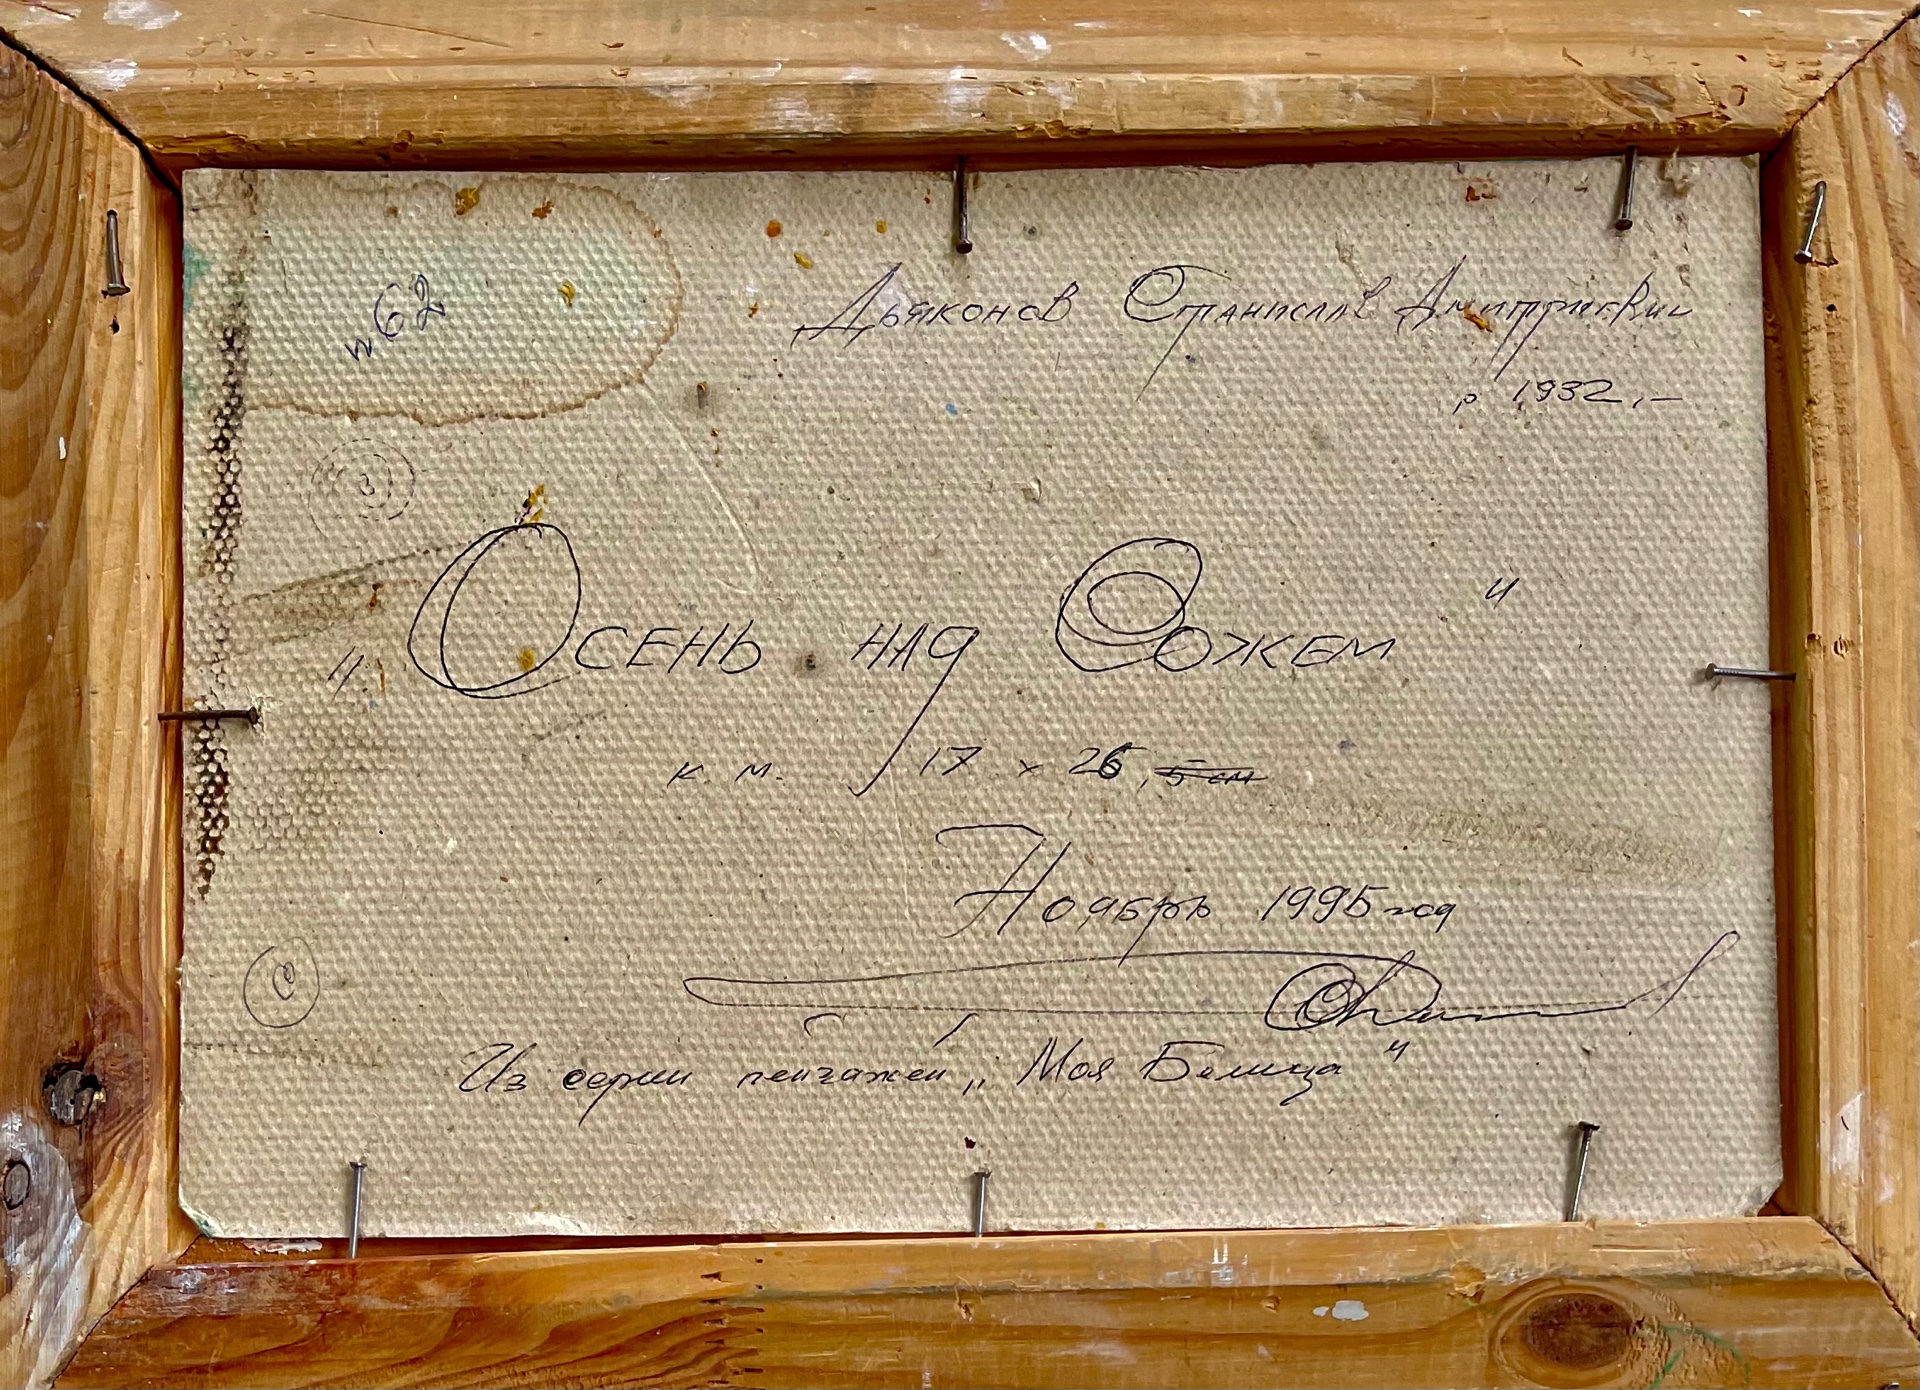 №62
Дьяконов Станислав Дмитриевич
р 1932,–
„ Осень над Сожем "
к. м. 17 × 26, 5 см
Ноябрь 1995 год
Из серии пейзажей „Моя Белица"